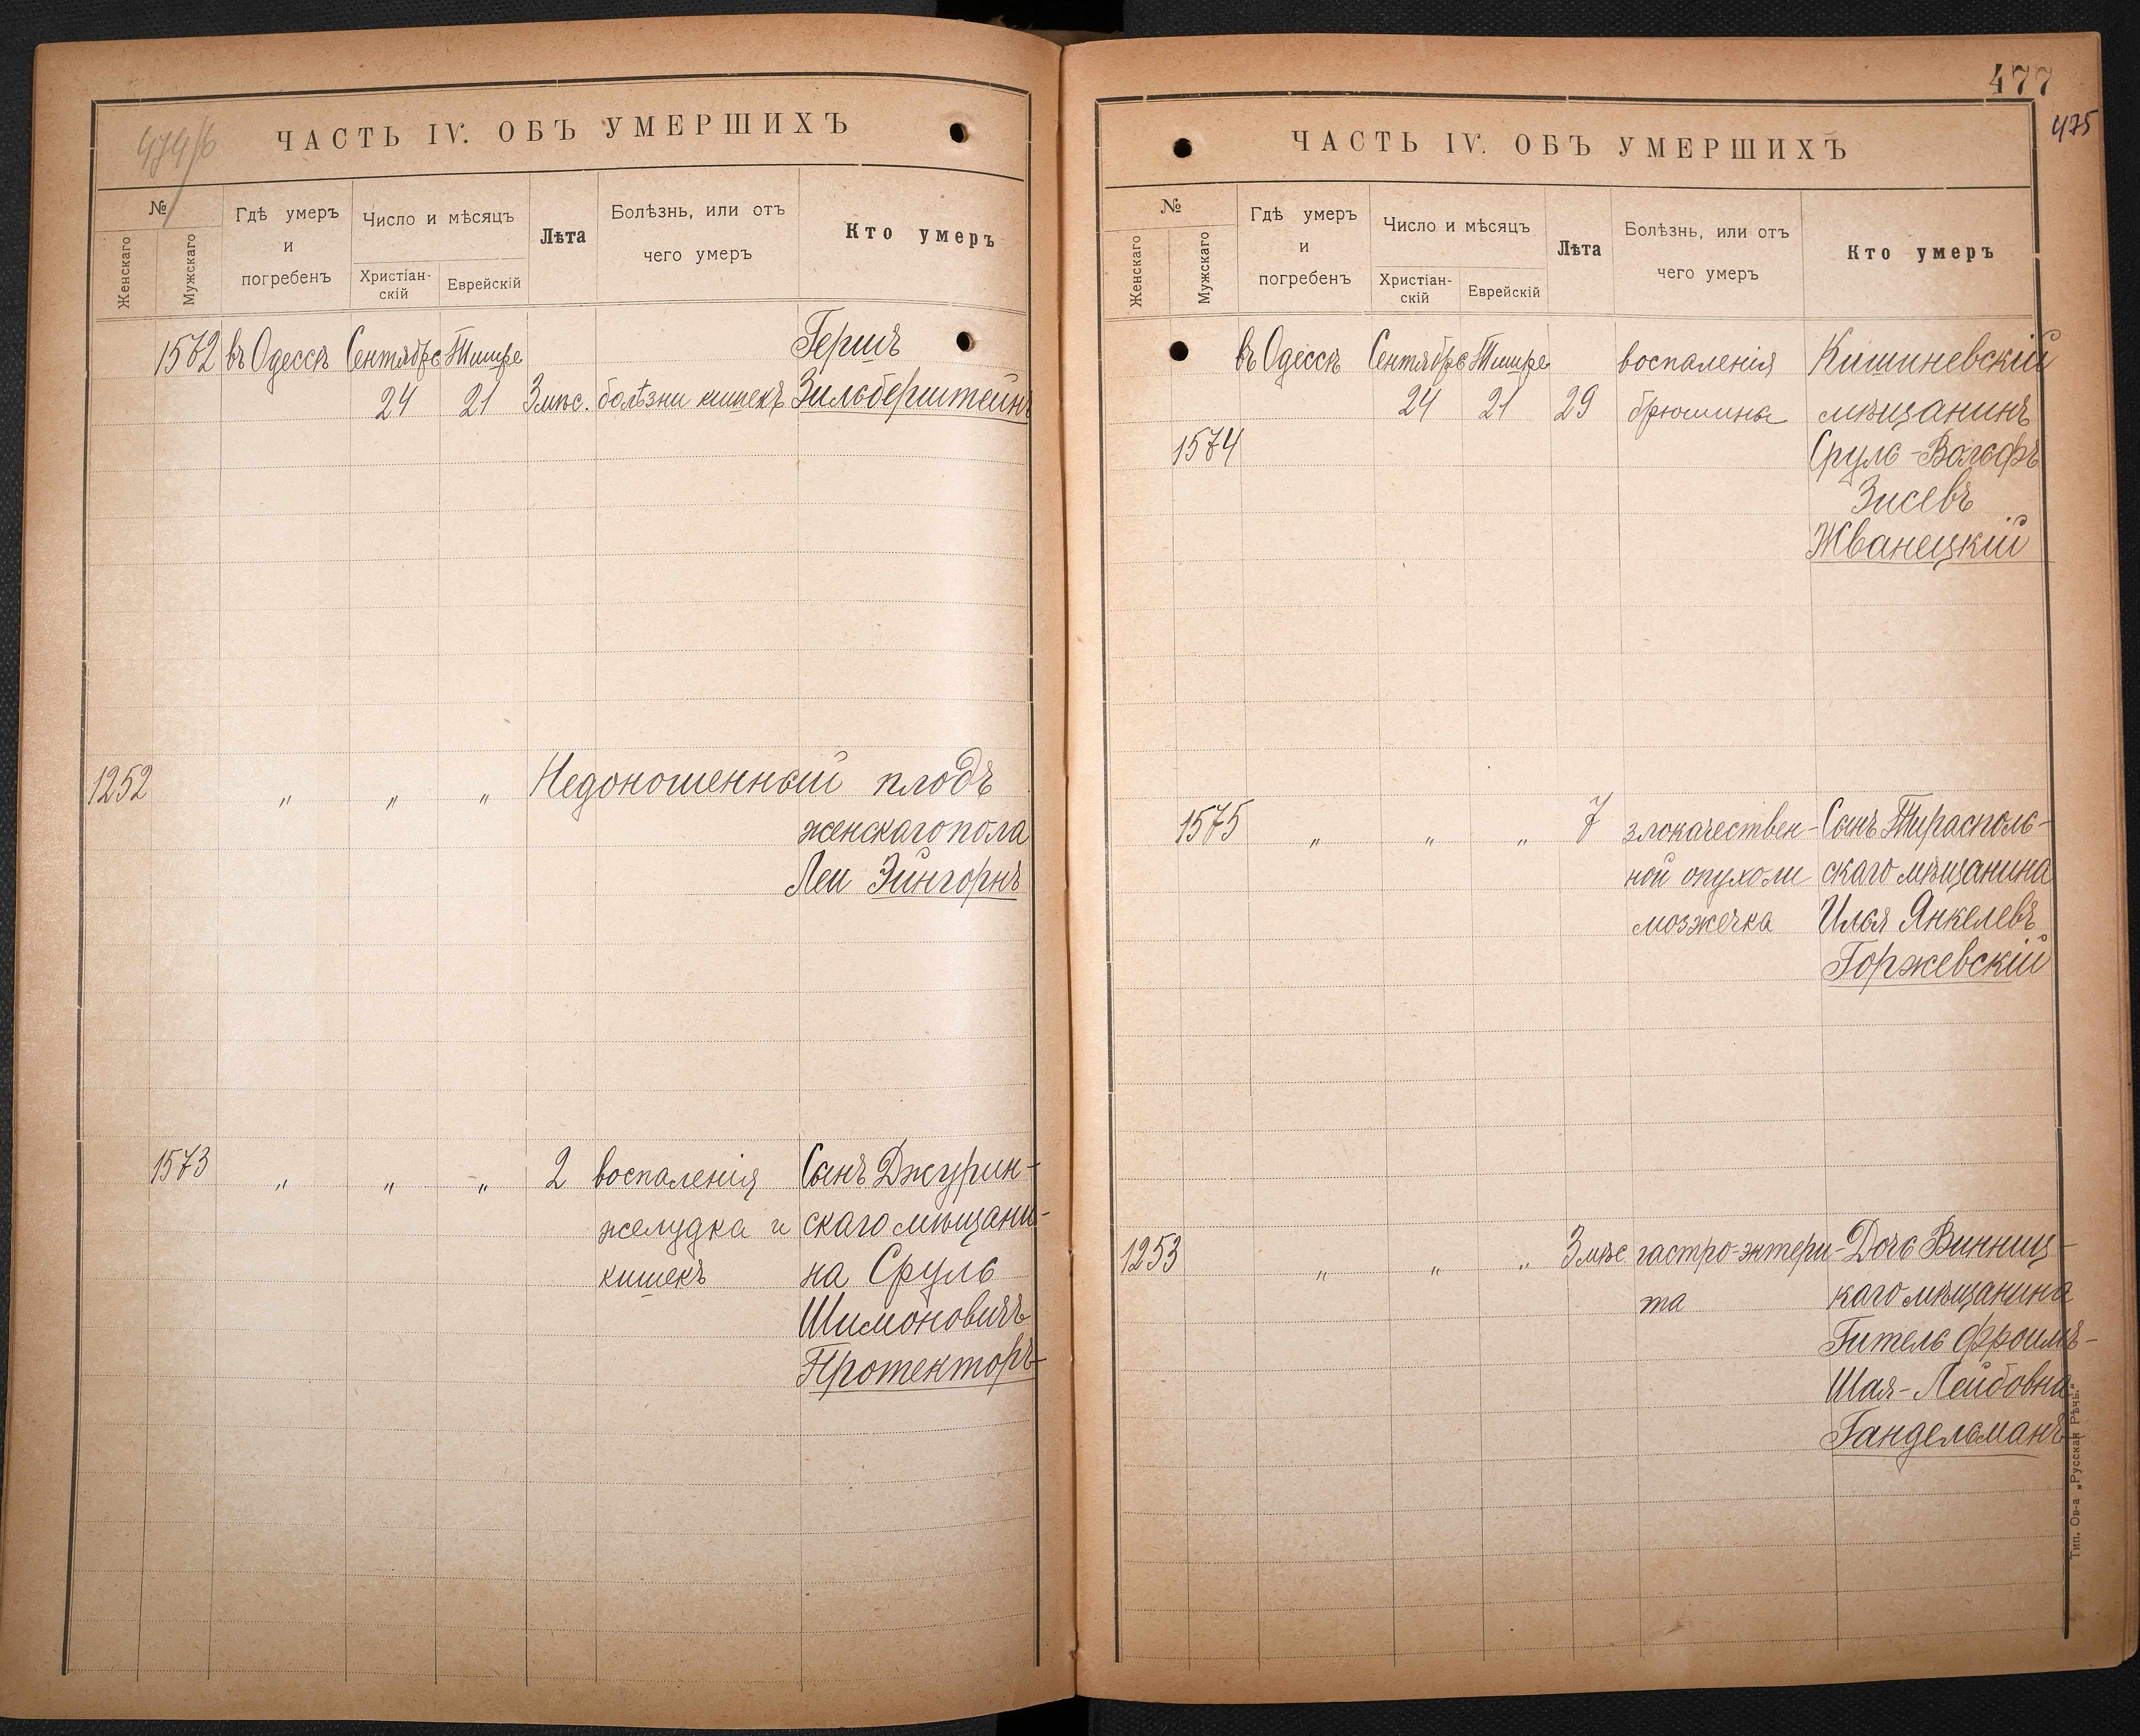 474/6
ЧАСТЬ IV. ОБЪ УМЕРШИХЪ
№
Женскаго
Мужскаго
Гдѣ умеръ
и
погребенъ
Число и мѣсяцъ
Христіан-
скій
Еврейскій
Лѣта
Болѣзнь, или отъ
чего умеръ
Кто умеръ
1572 въ Одессѣ Сентябрь Тишре Гершъ
24 21 3 мѣс. болѣзни кишекъ Зильберштейнъ
1252 " " " Недоношенный плодъ
женскаго пола
Леи Эйнгорнъ
1573 " " " 2 воспаленія Сынъ Джурин-
желудка и скаго мѣщани-
кишекъ на Сруль
Шимоновичъ
Протекторъ
477
475
ЧАСТЬ IV. ОБЪ УМЕРШИХЪ
№
Женскаго
Мужскаго
Гдѣ умеръ
и
погребенъ
Число и мѣсяцъ
Христіан-
скій
Еврейскій
Лѣта
Болѣзнь, или отъ
чего умеръ
Кто умеръ
въ Одессѣ Сентябрь Тишре воспаленія Кишиневскій
24 21 29 брюшины мѣщанинъ
1574 Сруль-Вольфъ
Зисевъ
Жванецкій
1575 " " " 7 злокачествен- Сынъ Тирасполь-
ной опухоли скаго мѣщанина
мозжечка Илья Янкелевъ
Горжевскій
1253 " " " 3 мѣс гастро-энтери- Дочь Винниц-
та каго мѣщанина
Гитель Фроимъ-
Шая-Лейбовна
Гандельманъ
Тип. Ов-а „Русская Рѣчь."